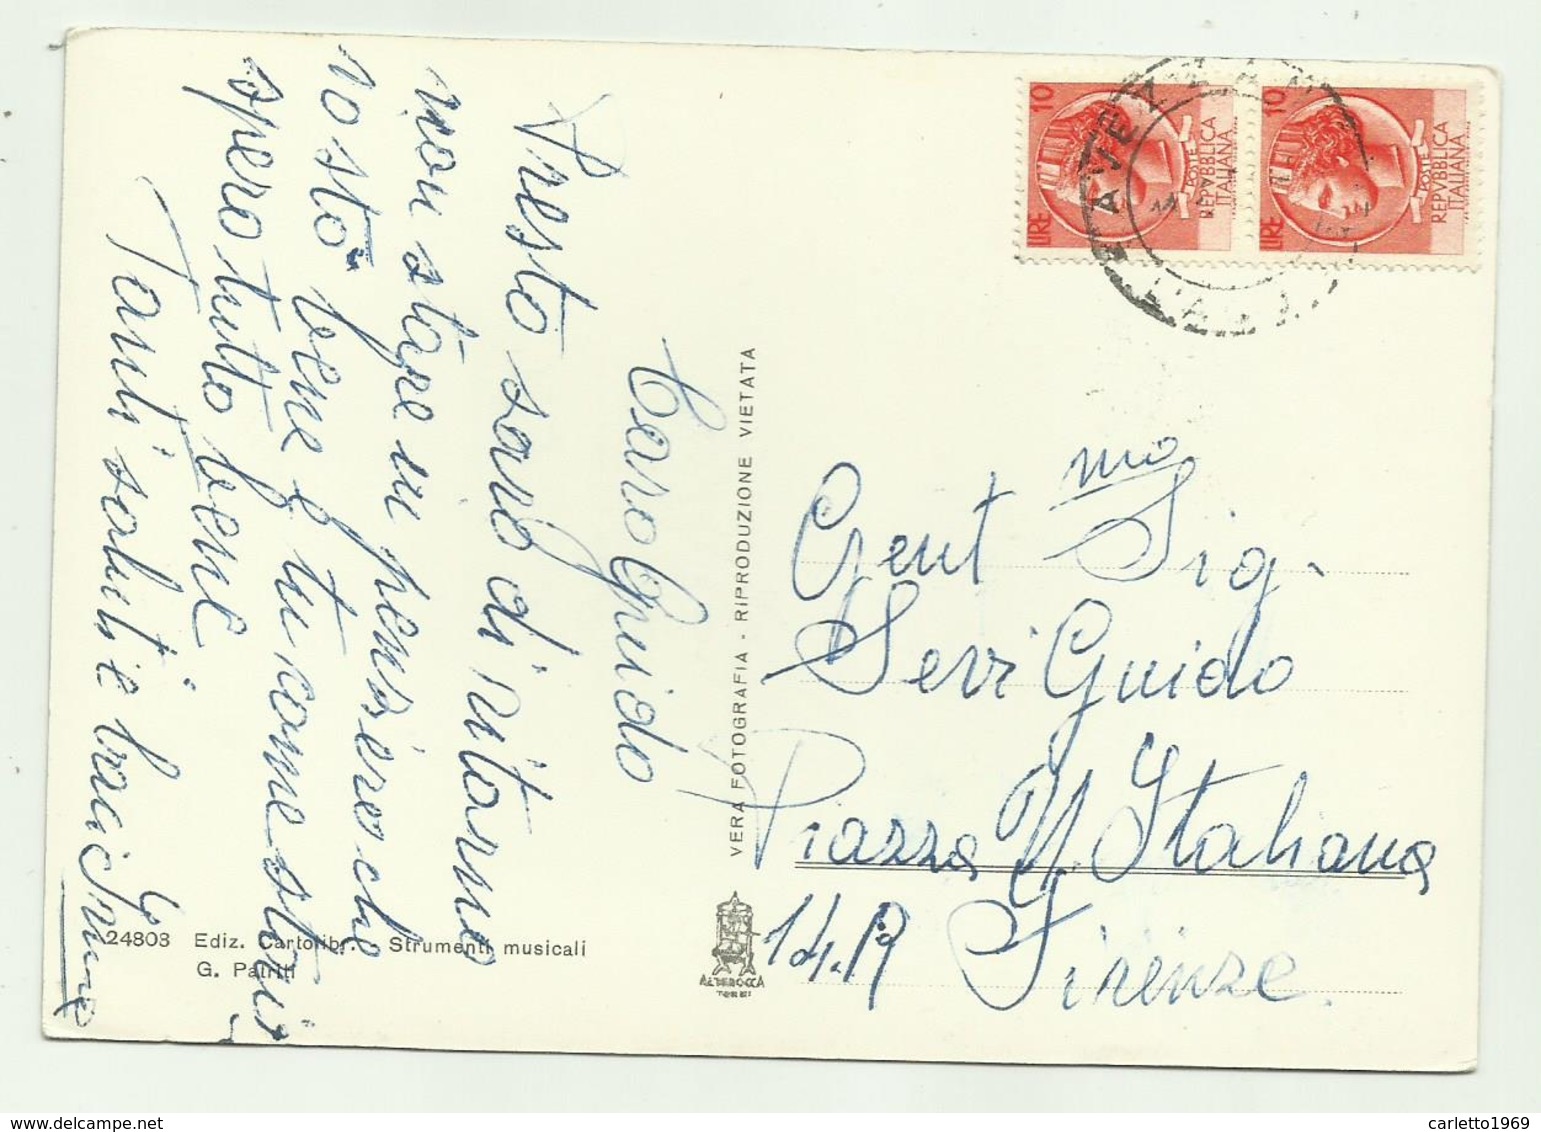 Caro Guido
Presto sarò di ritorno
non stare in pensiero che
io sto bene e tu come stai
spero tutto bene
Tanti saluti e baci
24803 Ediz. Cartolibr. - Strumenti musicali
G. Patriti
VERA FOTOGRAFIA - RIPRODUZIONE VIETATA
ALTEROCCA
TERNI
LIRE 10
POSTE
REPVBBLICA
ITALIANA
LIRE 10
POSTE
REPVBBLICA
ITALIANA
AVEZZANO
L'AQ
Gent mo Sig.
Sevi Guido
Piazza Italiana
14. R
Firenze
carletto1969